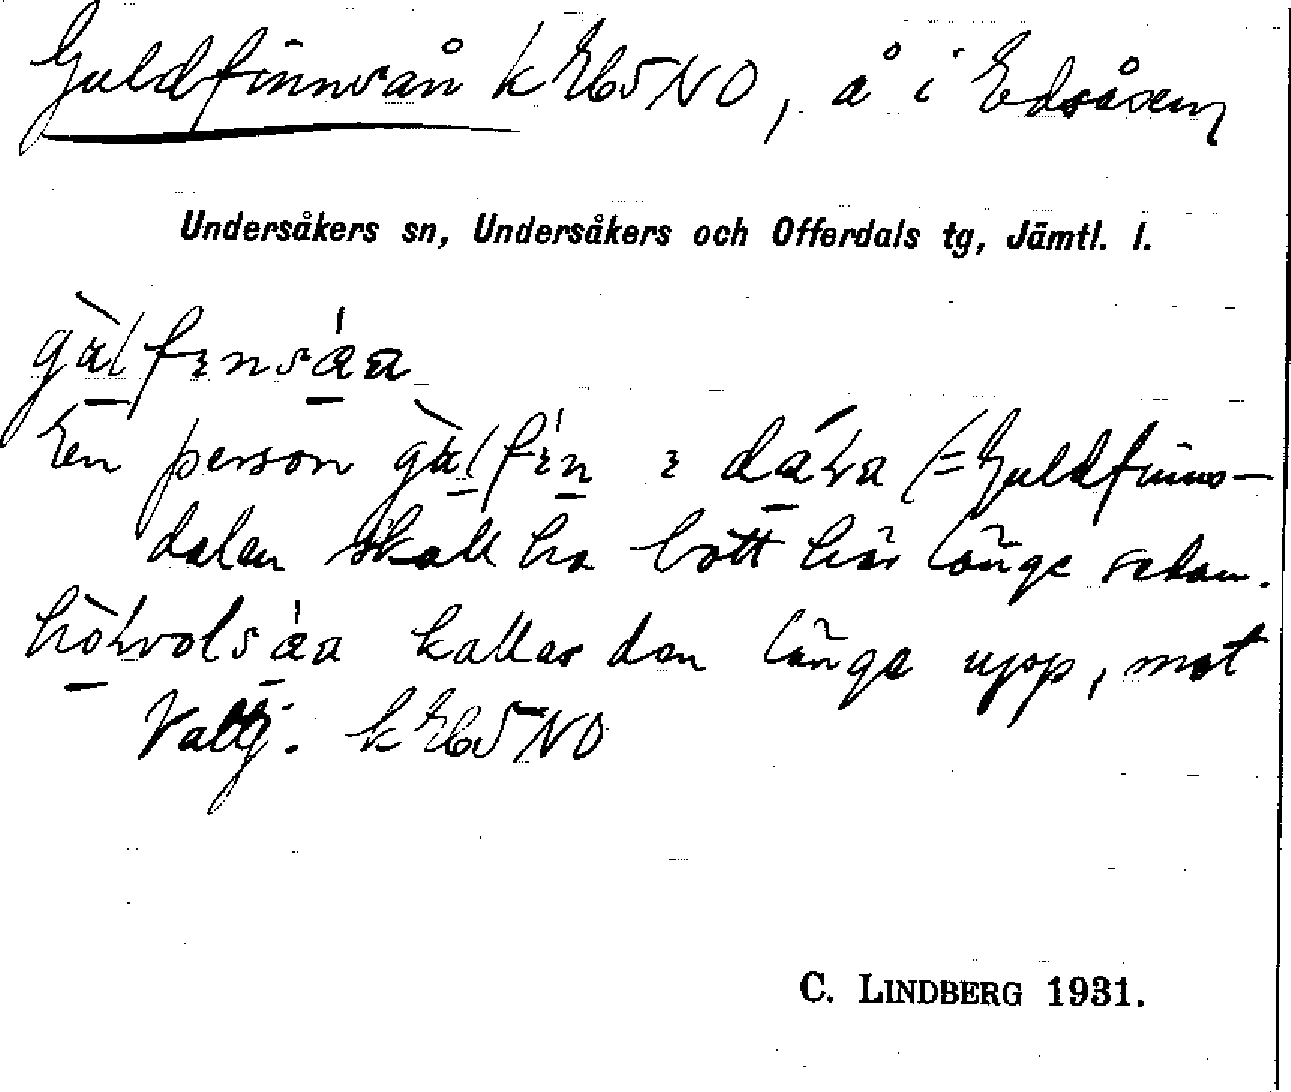 Guldfinnsån k Efb5NO, å i Edsåsen
Undersåkers sn, Undersåkers och Offerdals tg, Jämtl. l.
gàlfɩnsáa
En person gàlfɩn ɩ daɫa (= Guldfinns-
dalen skall ha bott här länge sedan.
kallas den länge upp, mot
NO
C. LINDBERG 1931.